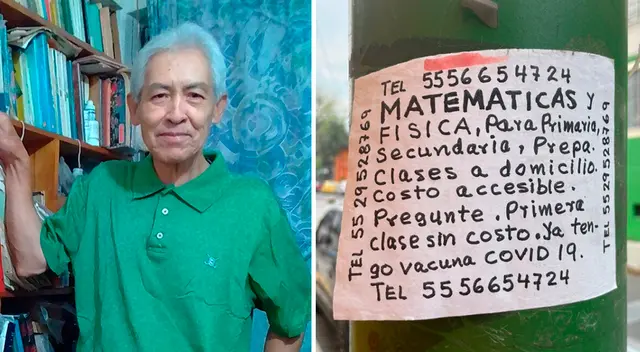 TEL 5556654724
MATEMATICAS y
FISICA, Para Primaria,
Secundaria, Prepa.
Clases a domicilio.
Costo accesible.
Pregunte. Primera
clase sin costo. Ya ten-
go vacuna COVID 19.
TEL 5556654724
TEL 5529528769
TEL 5529528769